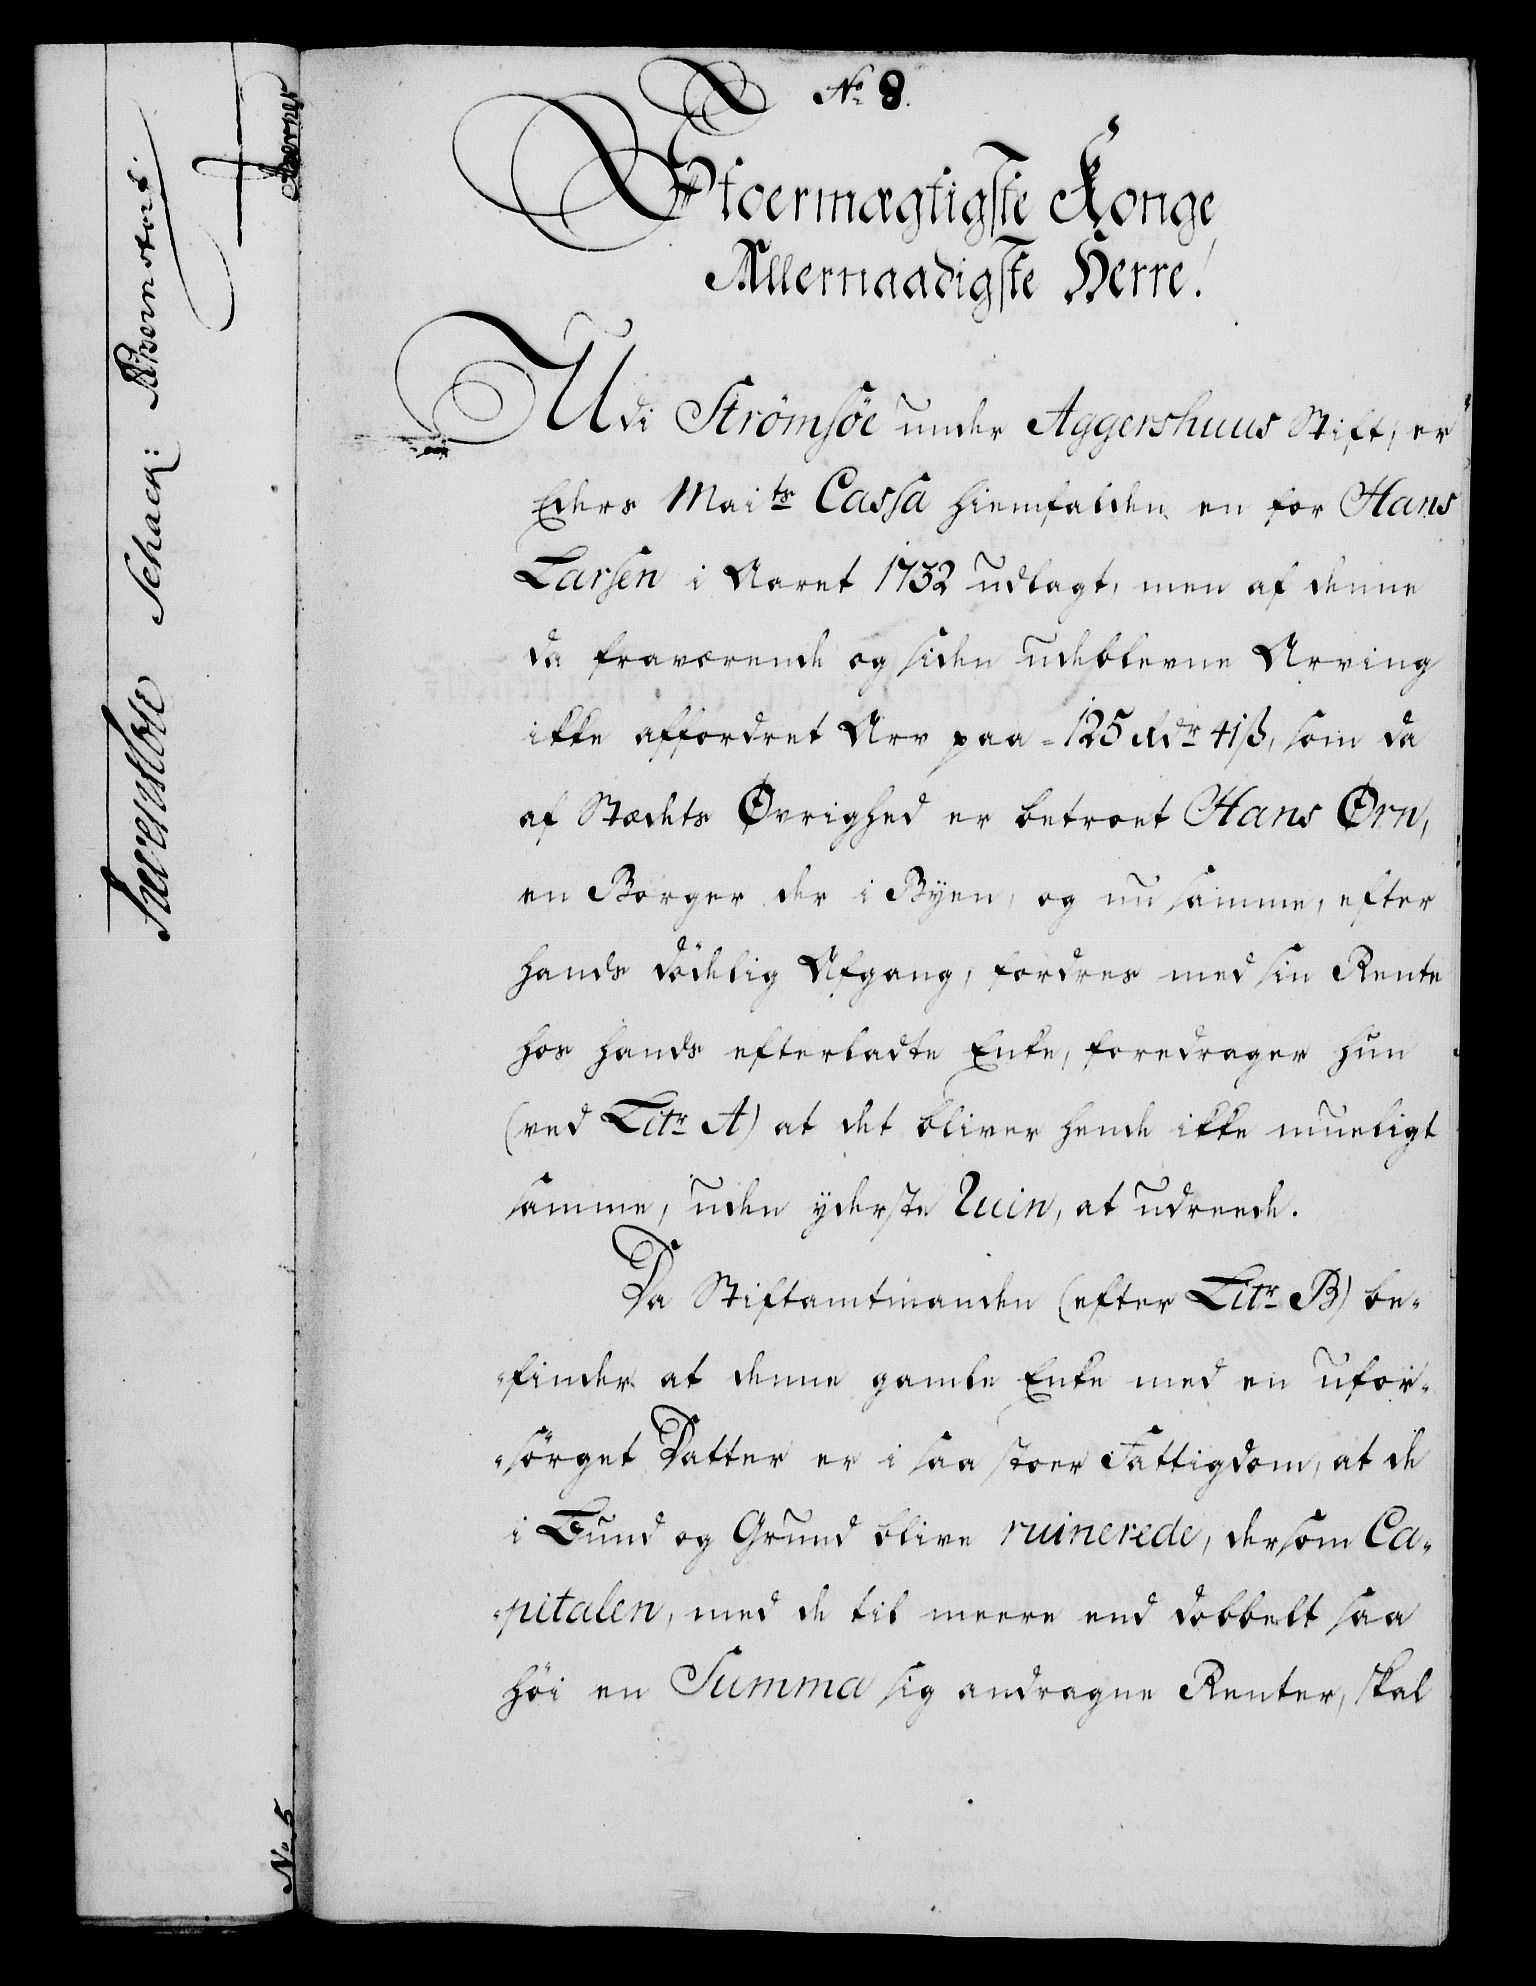 No 8.
Stoermægtigste Konge,
Allernaadigste Herre!
Udi Strömsöe under Aggershuus Stift, er
Eders Maits Cassa hiemfalden en for Hans
Larsen i Aaret 1732 udlagt, men af denne
da fraværende og siden udeblevne Arving
ikke affordret Arv paa 125 Rdr 41 ß, som da
af Stædets Øvrighed er betroet Hans Ørn,
en Borger der i Byen, og nu samme, efter
hands dödelig Afgang, fordres med sin Rente
hos hands efterladte Enke, foredrager hun
(ved Litr A) at det bliver hende ikke mueligt
samme, uden yderste Ruin, at udreede.
Da Stiftamtmanden (efter Litr B) be-
-finder at denne gamle Enke med en ufor-
-sörget Datter er i saa stoer Fattigdom, at de
i Bund og Grund blive ruinerede, dersom Ca-
-pitalen, med de til meere end dobbelt saa
höi en Summa sig andragne Renter, skal
Schack:
No 5